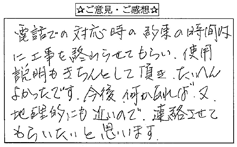 ☆ご意見・ご感想☆
電話での対応時の約束の時間内
に工事を終わらせてもらい、使用
説明もきちんとして頂き、たいへん
よかったです。今後何かあれば又、
地理的にも近いので、連絡させて
もらいたいと思います。